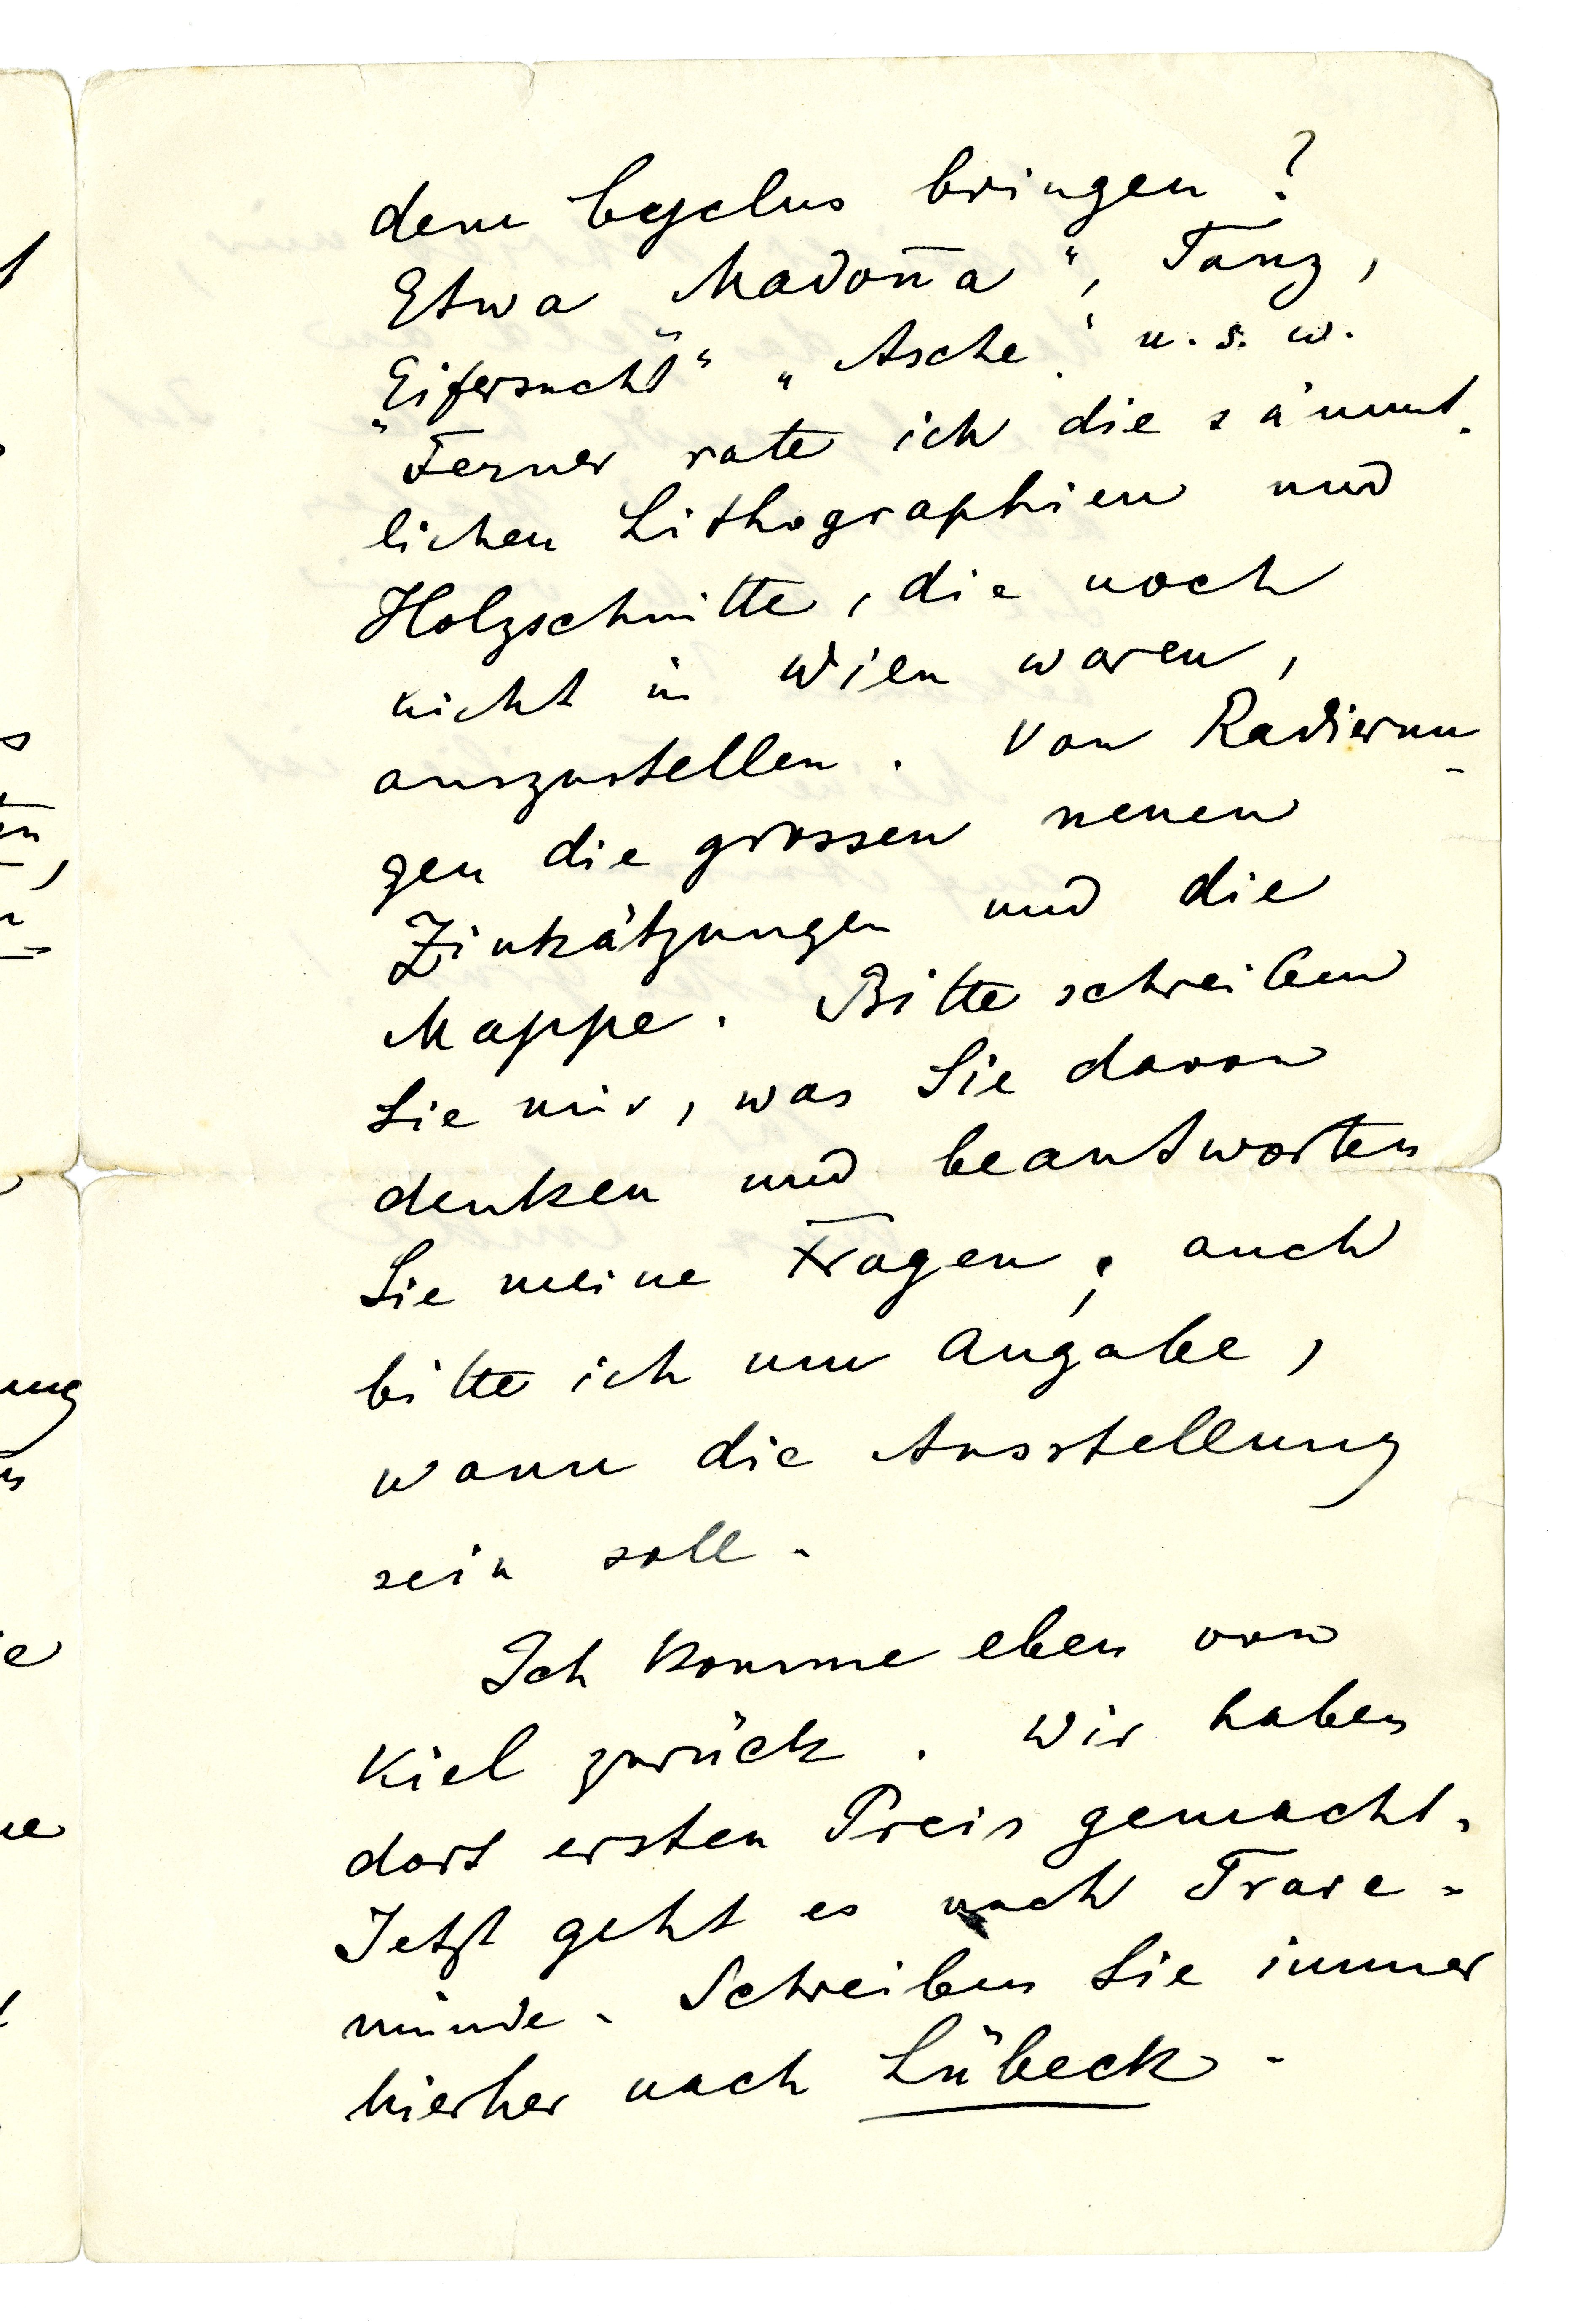 dem Cyclus bringen?
Etwa Madon̄a", Tanz,
„Eifersucht" „Asche" u. s. w.
Ferner rate ich die sämmt-
lichen Lithographien und
Holzschnitte, die noch
nicht in Wien waren,
auszustellen. Von Radierun-
gen die grossen neuen
Zinkätzungen und die
Mappe. Bitte schreiben
Sie mir, was Sie davon
denken und beantworten
Sie meine Fragen; auch
bitte ich um Angabe,
wann die Ausstellung
sein soll.
Ich komme eben von
Kiel zurück. Wir haben
dort ersten Preis gemacht.
Jetzt geht es nach Trave-
münde. Schreiben Sie immer
hierher nach Lübeck.